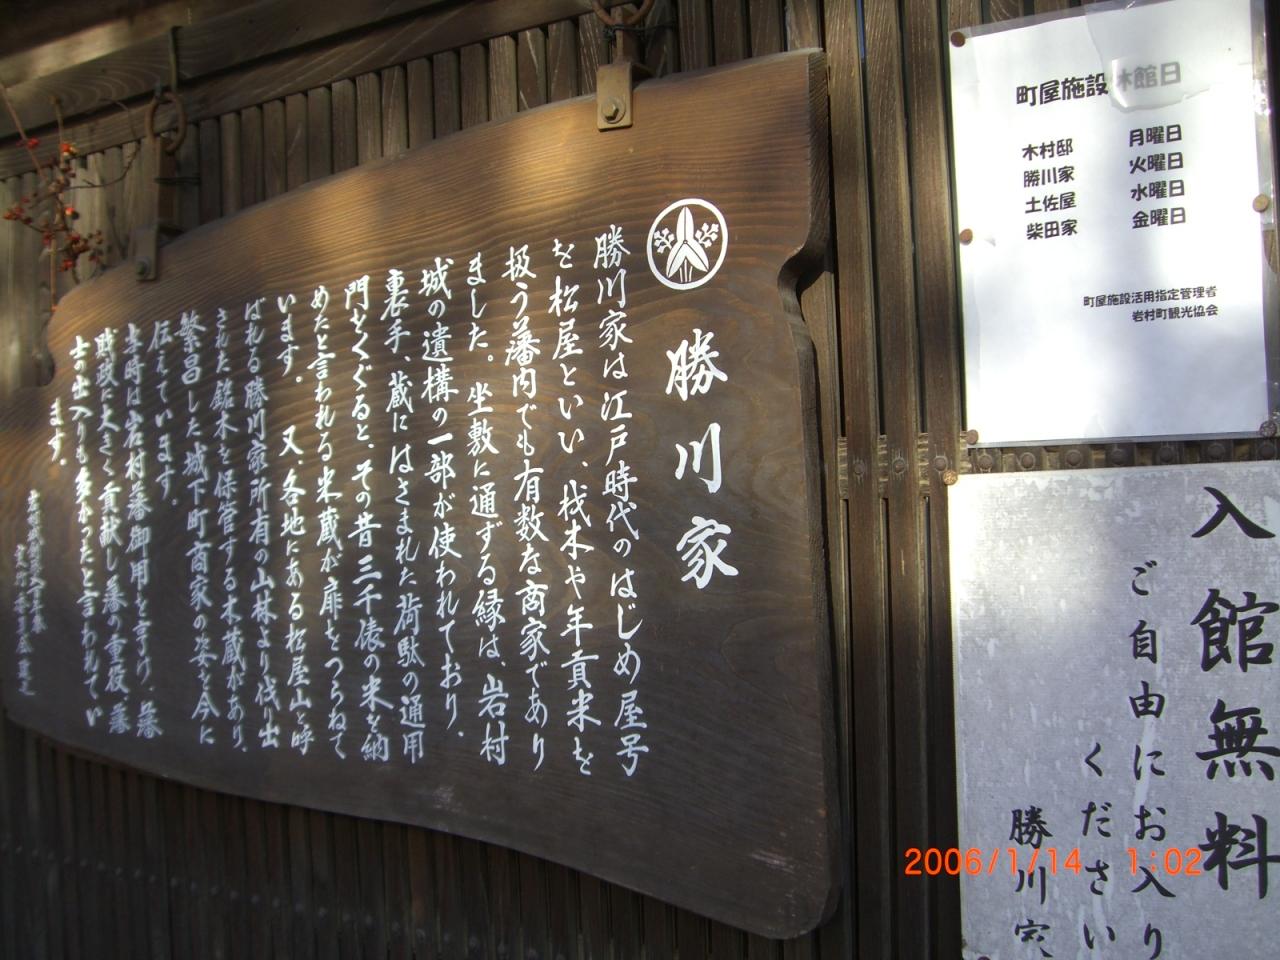 町屋施設休館日
木村邸 月曜日
勝川家 火曜日
土佐屋 水曜日
柴田家 金曜日
町屋施設活用指定管理者
岩村町観光協会
入館無料
ご自由にお入り
ください
勝川家
勝川家
勝川家は江戸時代のはじめ屋号
を松屋といい、材木や年貢米を
扱う藩内でも有数な商家であり
ました。坐敷に通ずる縁は、岩村
城の遺構の一部が使われており、
裏手、蔵にはさまれた荷駄の通用
門をくぐると、その昔三千俵の米を納
めたと言われる米蔵が扉をつらねて
います。又、各地にある松屋山と呼
ばれる勝川家所有の山林より伐り出
された銘木を保管する木蔵があり、
繁昌した城下町商家の姿を今に
伝えています。
当時は岩村藩御用を享け、藩
財政に大きく貢献し藩の重役、藩
士の出入りも多かったと言われてい
ます。
2006/1/14 1:02